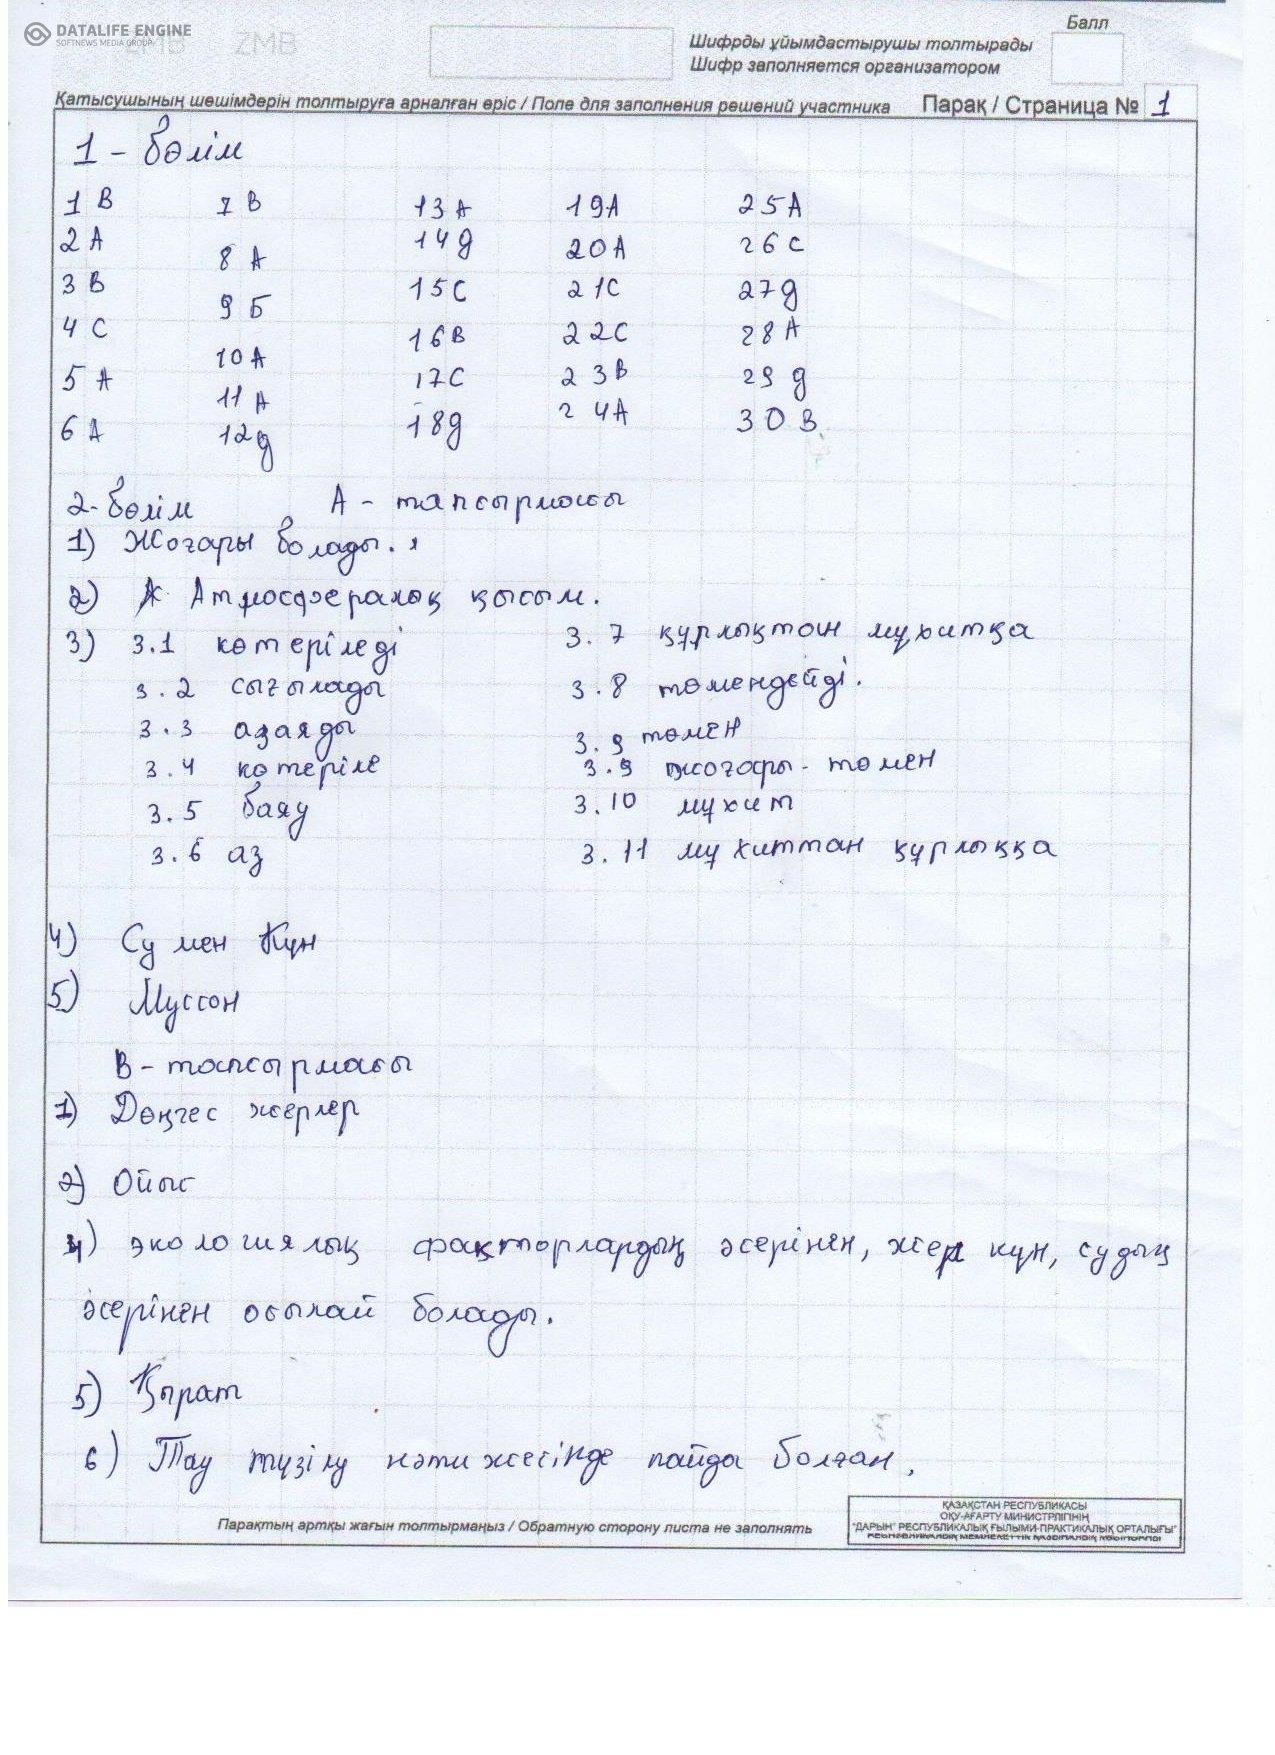 DATALIFE ENGINE
SOFTNEWS MEDIA GROUP
ZMB ZMB
Балл
Шифрды ұйымдастырушы толтырады
Шифр заполняется организатором
Қатысушының шешімдерін толтыруға арналған өріс / Поле для заполнения решений участника Парақ / Страница № 1
1 - бөлім
1 В 7 В 13 А 19А 25А
2 А 8 А 14 д 20А 26 С
3 В 9 Б 15С 21С 27д
4 С 10А 16В 22С 28А
5 А 11 А 17С 23В 29 д
6 А 12д 18д 24А 30 В
2-бөлім А - тапсырмасы
1) Жоғары болады.
2) Атмосфералық қысым.
3) 3.1 көтеріледі 3.7 құрлықтан мұхитқа
3.2 сығылады 3.8 төмендейді.
3.3 азаяды 3.9 төмен
3.4 көтеріле 3.9 жоғары - төмен
3.5 баяу 3.10 мұхит
3.6 аз 3.11 мұхиттан құрлыққа
4) Су мен Күн
5) Муссон
В - тапсырмасы
1) Дөңгес жерлер
2) Ойыс
4) экологиялық факторлардың әсерінен, жер күн, судың
әсерінен осылай болады.
5) Қырат
6) Тау түзілу нәтижесінде пайда болған.
Парақтың артқы жағын толтырмаңыз / Обратную сторону листа не заполнять
ҚАЗАҚСТАН РЕСПУБЛИКАСЫ
ОҚУ-АҒАРТУ МИНИСТРЛІГІНІҢ
"ДАРЫН" РЕСПУБЛИКАЛЫҚ ҒЫЛЫМИ-ПРАКТИКАЛЫҚ ОРТАЛЫҒЫ"